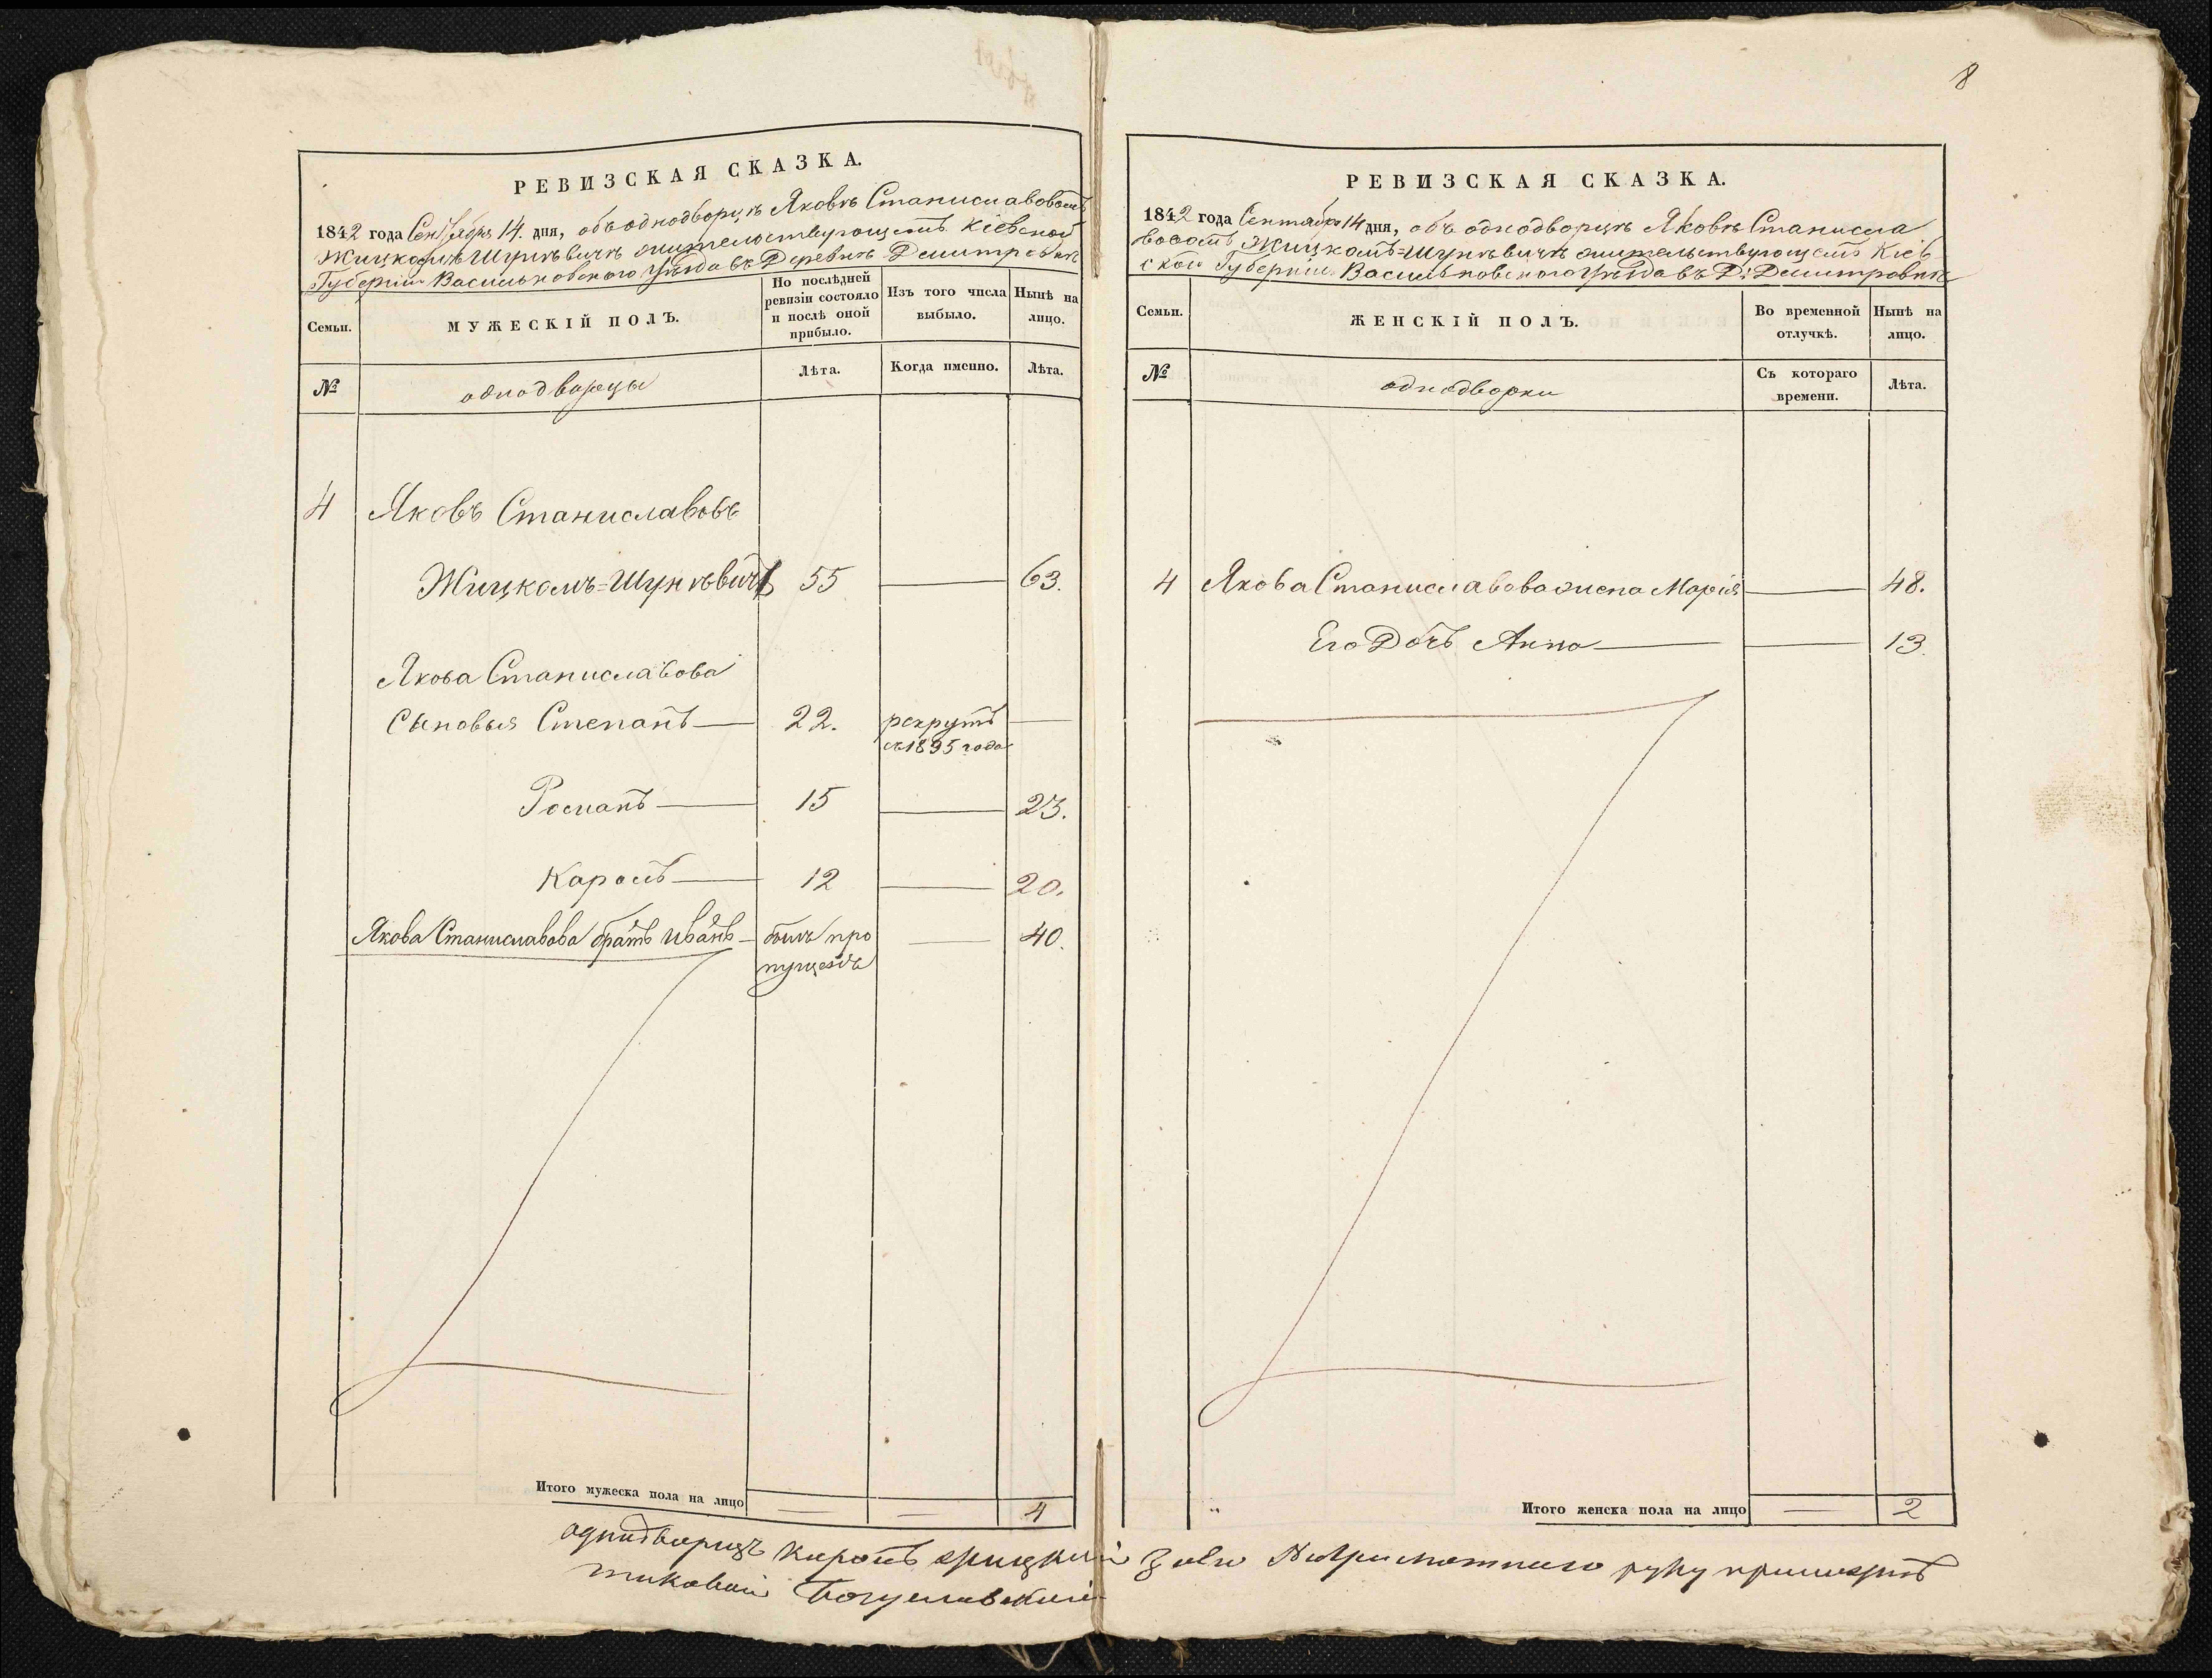 РЕВИЗСКАЯ СКАЗКА.
1842 года Сентября 14. дня, объ однодворцѣ Яковѣ Станиславовомъ
Жицкомъ Шункѣвичѣ жительствующемъ Кіевской
Губерніи Васильковского Уѣзда въ Деревнѣ Демитровкѣ
Семьи.
МУЖЕСКІЙ ПОЛЪ.
По послѣдней ревизіи состояло и послѣ оной прибыло.
Изъ того числа выбыло.
Нынѣ на лицо.
№
однодворцы
Лѣта.
Когда именно.
Лѣта.
4 Яковъ Станиславовъ
Жицкомъ=Шункѣвичъ 55 — 63.
Якова Станиславова
Сыновья Степанъ — 22. рекрутъ —
съ 1835 года
Романъ — 15 — 23.
Кароль — 12 — 20.
Якова Станиславова братъ Иванъ — былъ про — 40.
пущенъ
Итого мужеска пола на лицо — — 4
8
РЕВИЗСКАЯ СКАЗКА.
1842 года Сентября 14 дня, объ однодворцѣ Яковѣ Станисла
вовомъ Жицкомъ=Шункѣвичѣ жительствующемъ Кіев
ской Губерніи Васильковского Уѣзда въ Д: Демитровкѣ
Семьи.
ЖЕНСКІЙ ПОЛЪ.
Во временной отлучкѣ.
Нынѣ на лицо.
№
однодворки
Съ котораго времени.
Лѣта.
4 Якова Станиславова жена Марія — 48.
Его Дочь Анна — — 13.
Итого женска пола на лицо — 2
однодворецъ Кароль Жицкій руку приложилъ